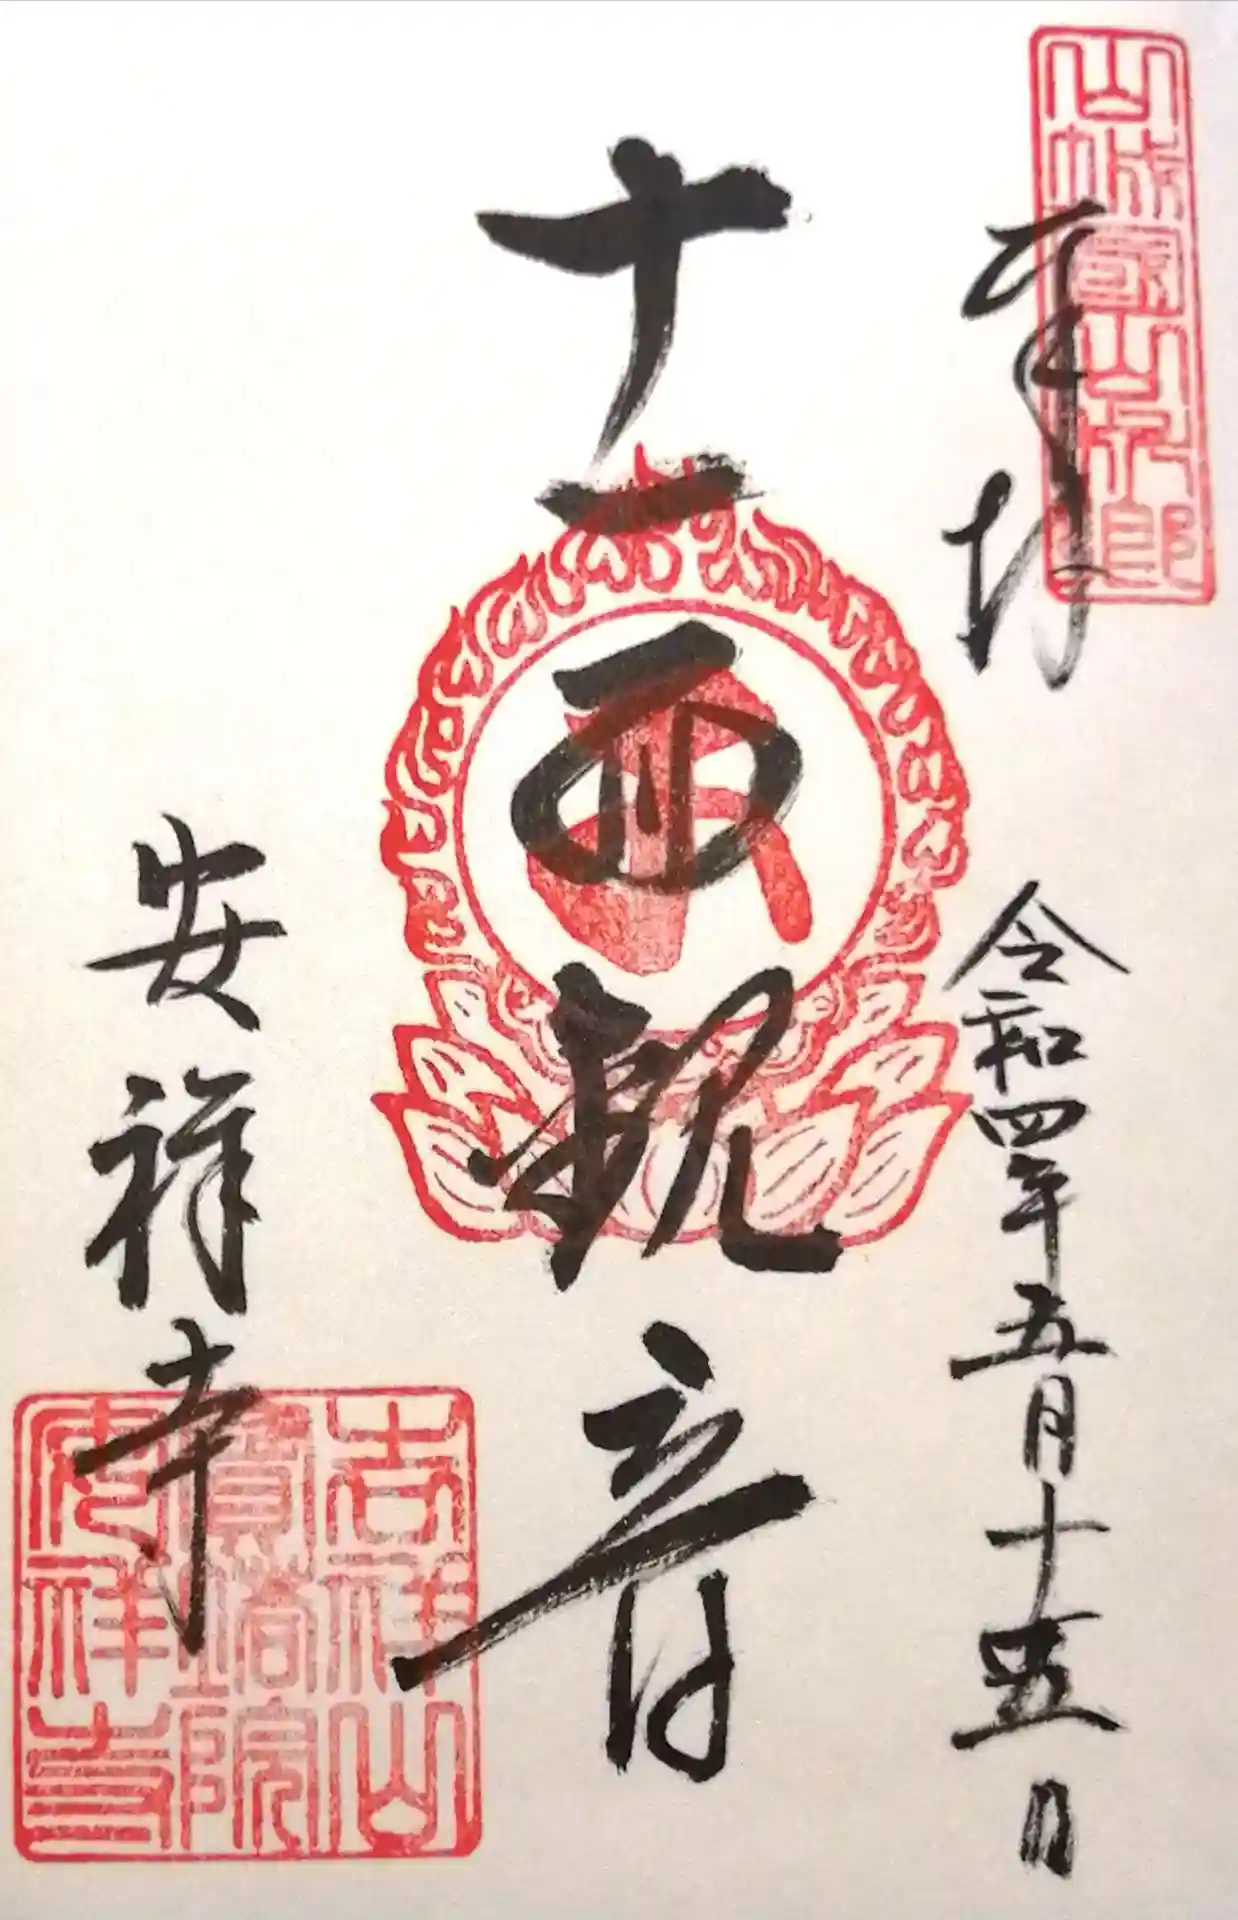 奉拝
令和四年五月十五日
山城國山科郷
十一面観音
安祥寺
吉祥山
寳塔院
安祥寺